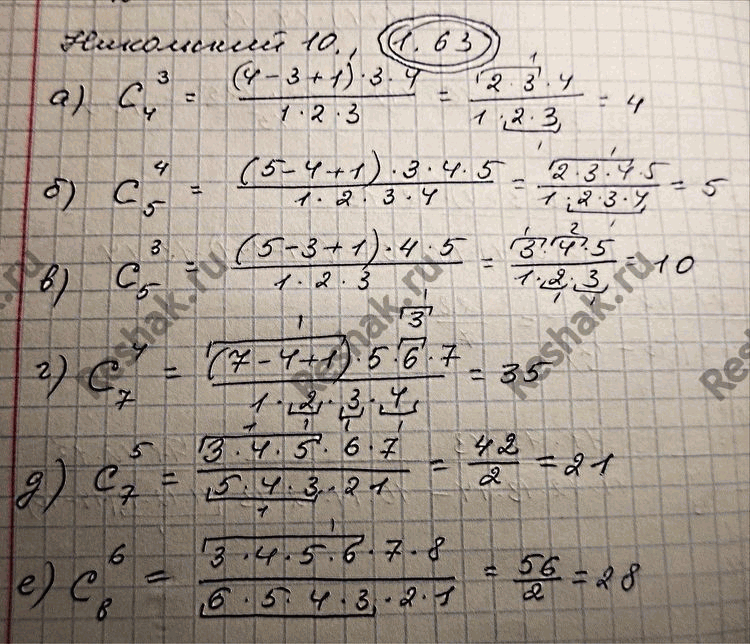 Никольский 10., 1.63
а) C₄³ = (4-3+1)·3·4 / 1·2·3 = 2·3·4 / 1·2·3 = 4
б) C₅⁴ = (5-4+1)·3·4·5 / 1·2·3·4 = 2·3·4·5 / 1·2·3·4 = 5
в) C₅³ = (5-3+1)·4·5 / 1·2·3 = 3·4·5 / 1·2·3 = 10
г) C₇⁴ = (7-4+1)·5·6·7 / 1·2·3·4 = 35
д) C₇⁵ = 3·4·5·6·7 / 5·4·3·21 = 42/2 = 21
е) C₈⁶ = 3·4·5·6·7·8 / 6·5·4·3·2·1 = 56/2 = 28
Reshak.ru
Reshak.ru
Reshak.ru
Reshak.ru